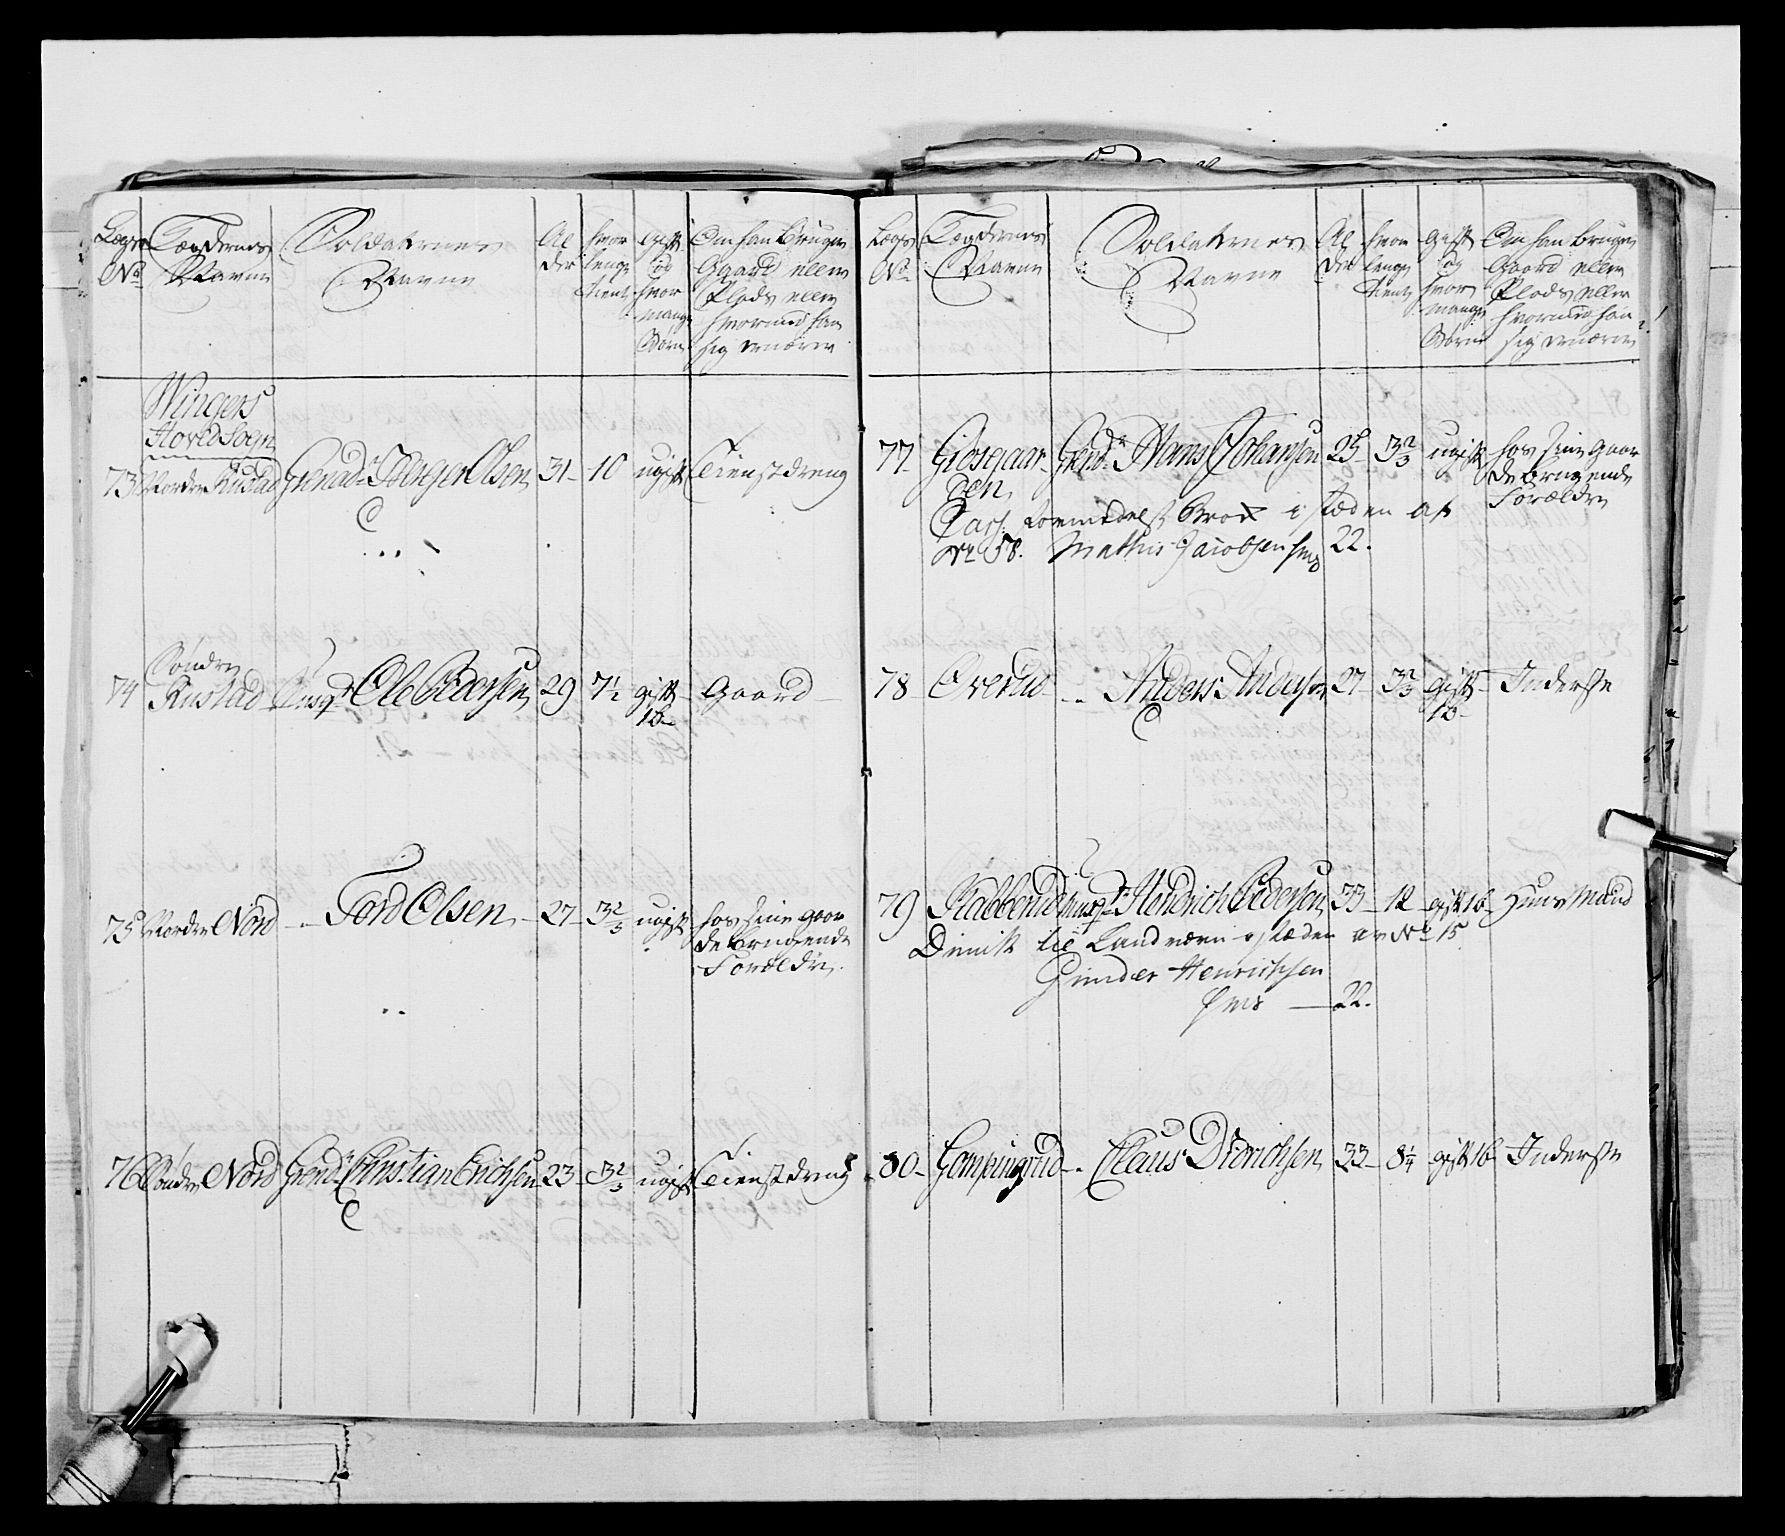 Lægs No
Lægdernes Navne
Soldaternes Navne
Al der
hvor lenge tient
gift og hvor mange Børn
Om han bruger Gaard eller Plads eller hvormed han sig ernærer
Wingers
Hoved Sogn
73 Nordre Rustad Grenad. Olsen 31 10 ugift Tienstdreng
74 Søndre Rustad Ole Pedersen 29 7½ gift 1b Gaard
75 Nordre Nord Tord Olsen 27 3⅔ ugift hos sine gaar
de brugende
Forældre
76 Søndre Nord Grend. Christian Erichsen 23 3⅔ ugift Tienstdreng
Lægs No
Lægdernes Navne
Soldaternes Navne
Al der
hvor lenge tient
gift og hvor mange Børn
Om han bruger Gaard eller Plads eller hvormed han sig ernærer
77 Giøsegaar Grend. Hans Johansen 25 3⅔ ugift hos sine gaar
den de brugende
Forældre
Cass. formedelst Brok i stæden af
No 58. Mathis Jacobsen 22.
78 Overud Anders Andersen 27 3⅔ gift 1b Inderste
79 Rabberud Hendrich Pedersen 33 12 gift 1b Huusmand
Dimit. til Landværn i stæden av No 15
Gunder Henrichsen
22.
80 Gompingrud Claus Didrichsen 33 8¼ gift 1b Inderste